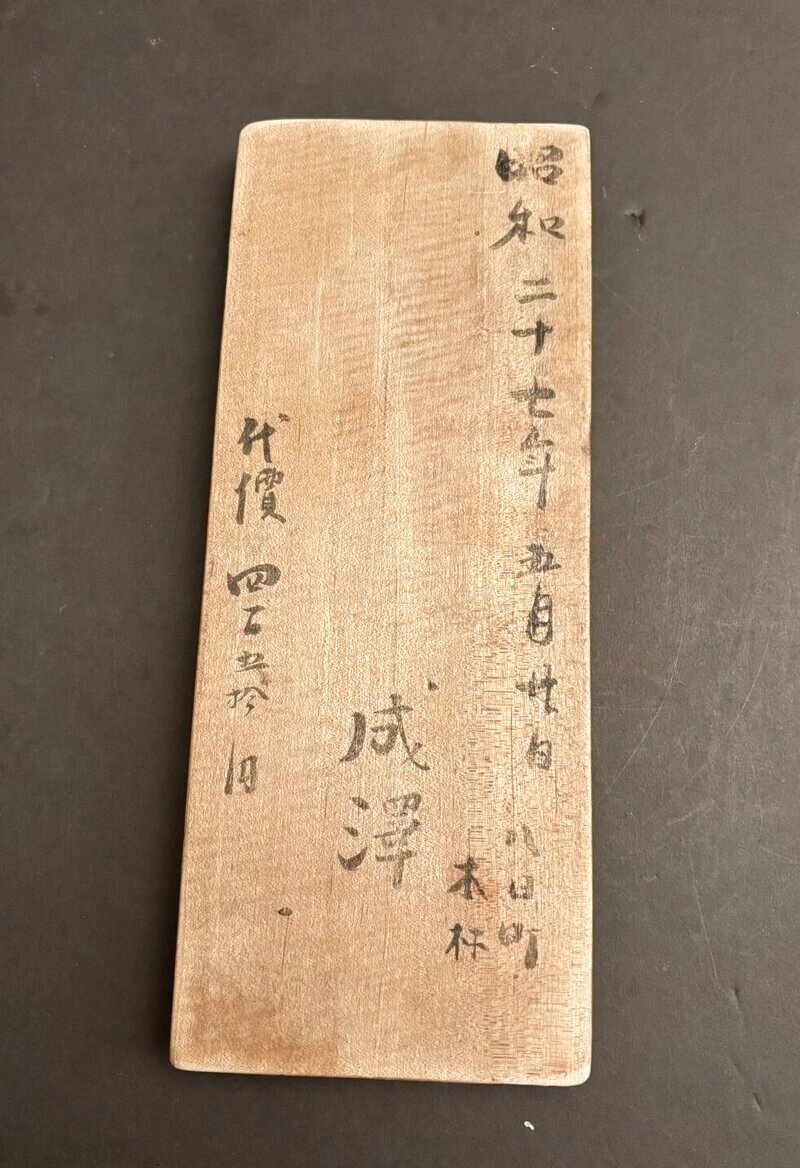 昭和二十七年五月廿日 八日町
木村
成澤
代價 四百五拾円